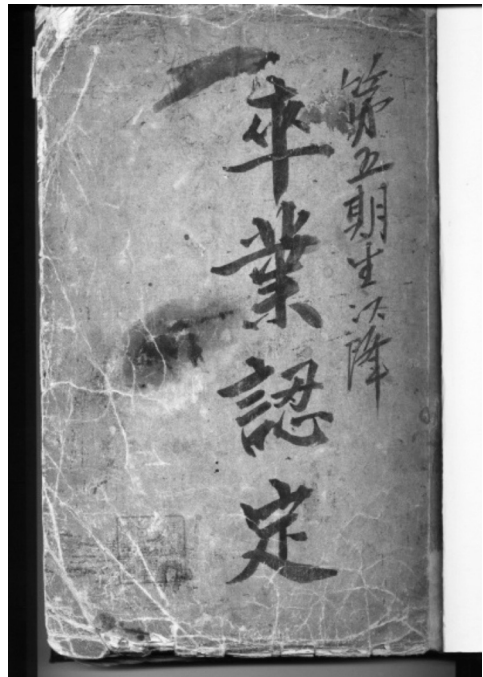 第五期生以降
卒業認定